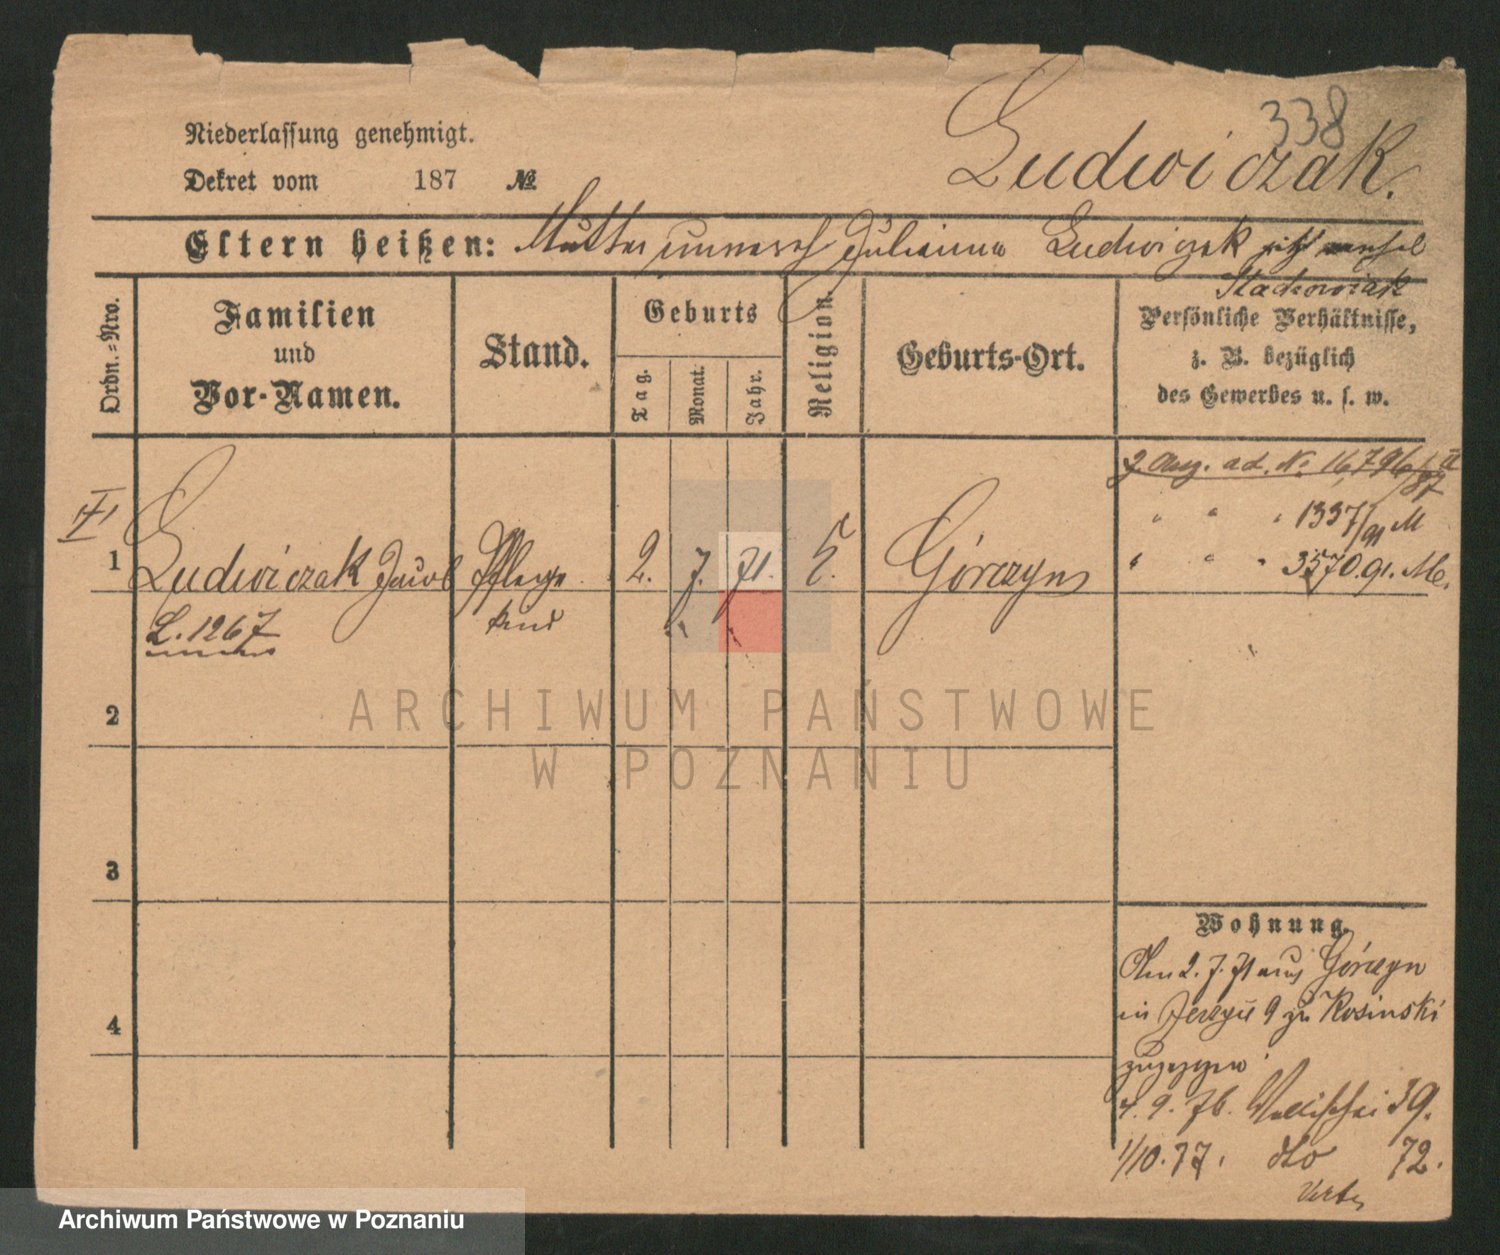 338
Niederlassung genehmigt.
Ludwiczak.
Dekret vom 187 №
Eltern heißen: Mutter unvereh Julianna Ludwiczak jetzt
Stachowiak
Ordn.=Nro.
Familien
und
Vor-Namen.
Stand.
Geburts
Tag.
Monat.
Jahr.
Religion.
Geburts-Ort.
Persönliche Verhältnisse,
z. B. bezüglich
des Gewerbes u. s. w.
1
Ludwiczak Jacob
L. 1267
Pflege
kind
2. 7. 71.
Górczyn
ad. No 16,796/87 II
" " " 1337/91 M
" " " 3570.91. M.
2
3
4
Wohnung.
Am 2. 7. 71 aus Górczyn
in Jerzyce 9 zu Kosinski
zugezogen
4. 9. 76. Wallischei 39.
1/10. 77. dto 72.
ARCHIWUM PAŃSTWOWE
W POZNANIU
Archiwum Państwowe w Poznaniu